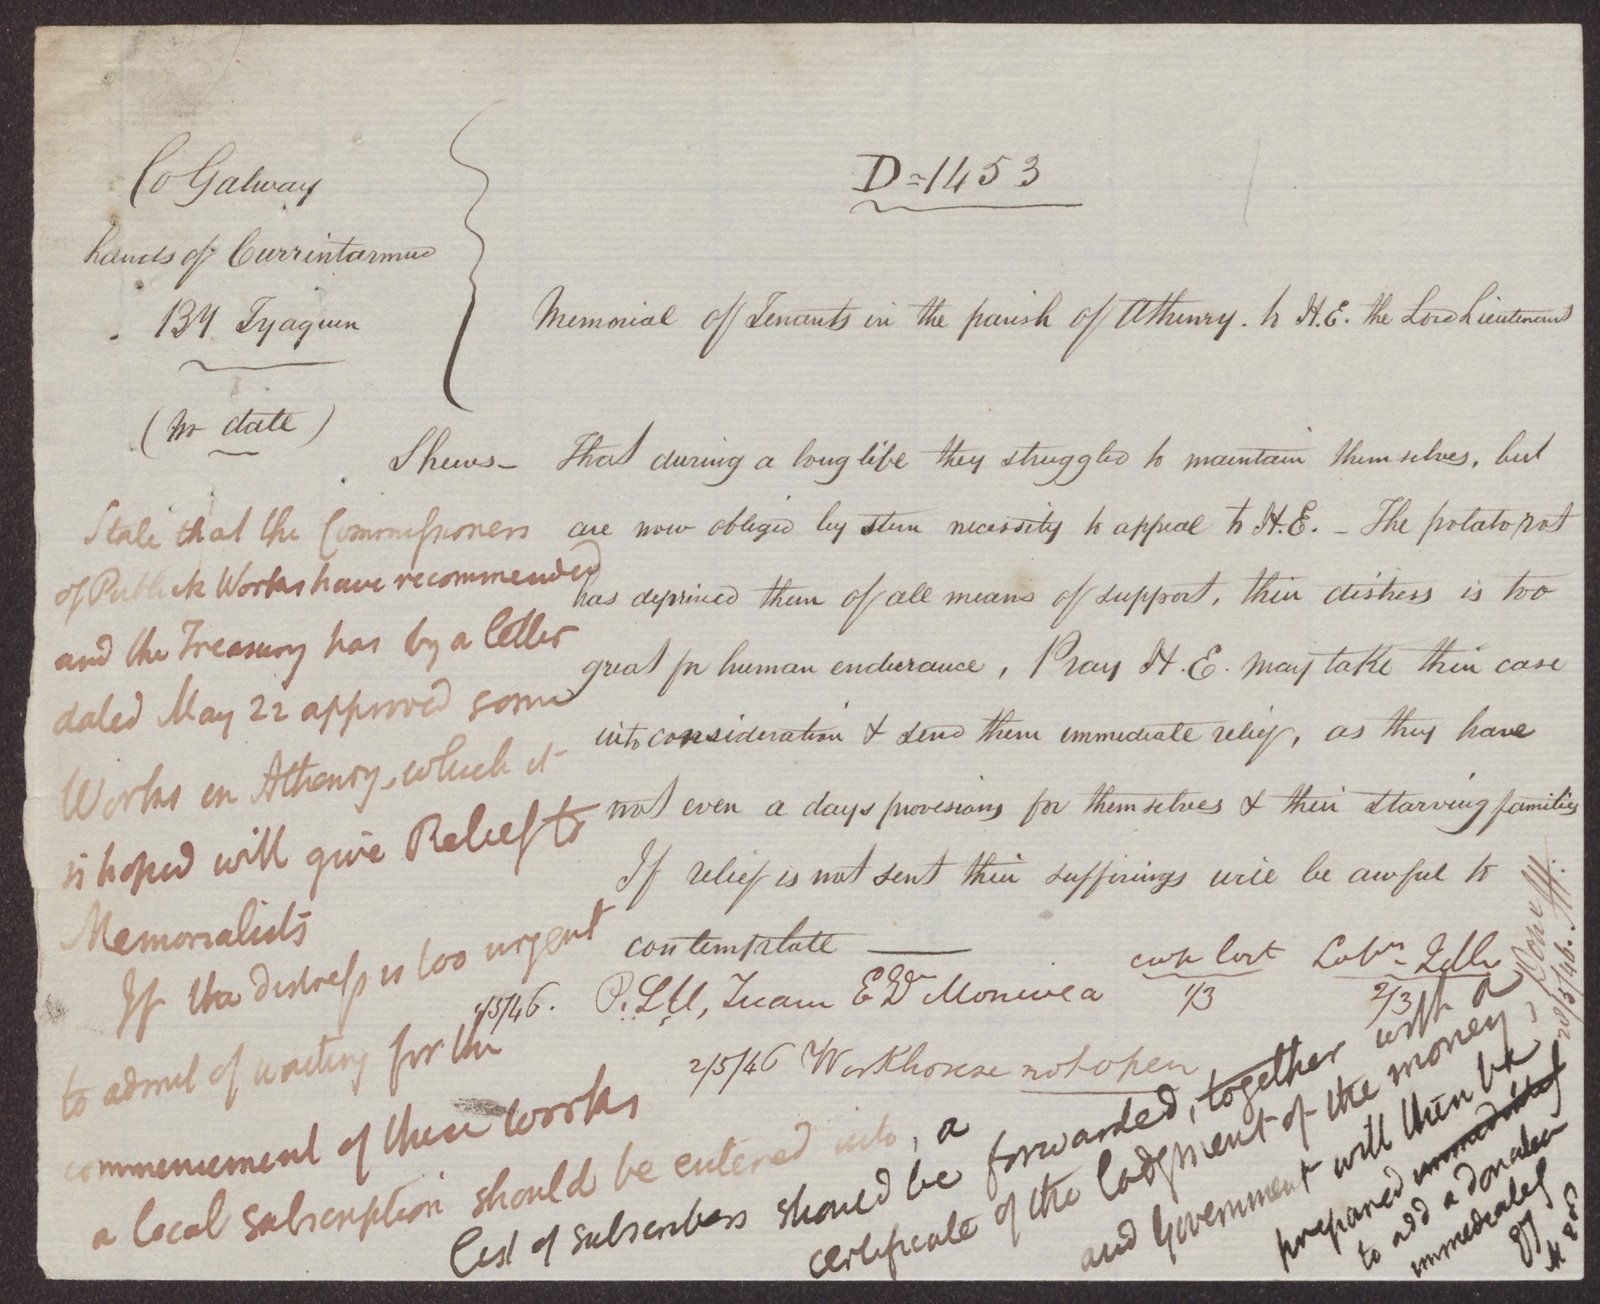 Co Galway
Lands of Currintarmud
134 Tyaquin
(no date)
D=1453
Memorial of Tenants in the parish of Athenry. to H.E. the Lord Lieutenant
Shews - That during a long life they struggled to maintain themselves, but
are now obliged by stern necessity to appeal to H.E. - The potato rot
has deprived them of all means of support, their distress is too
great for human endurance, Pray H.E. may take their case
into consideration & send them immediate relief, as they have
not even a days provisions for themselves & their starving families
If relief is not sent their sufferings will be awful to
contemplate
1/5/46. P.L.U, Tuam E Dn Monivea
1/3 2/3
2/5/46 Workhouse not open
State that the Commissioners
of Publick Works have recommended
and the Treasury has by a letter
dated May 22 approved some
Works in Athenry, which it
is hoped will give Relief to
Memorialists
If the distress is too urgent
to admit of waiting for the
commencement of these works
a local subscription should be entered into, a
list of subscribers should be forwarded, together with a
certificate of the lodgment of the money,
and Government will then be
prepared immediately
to add a donation
immediately
M 28
28/5/46.